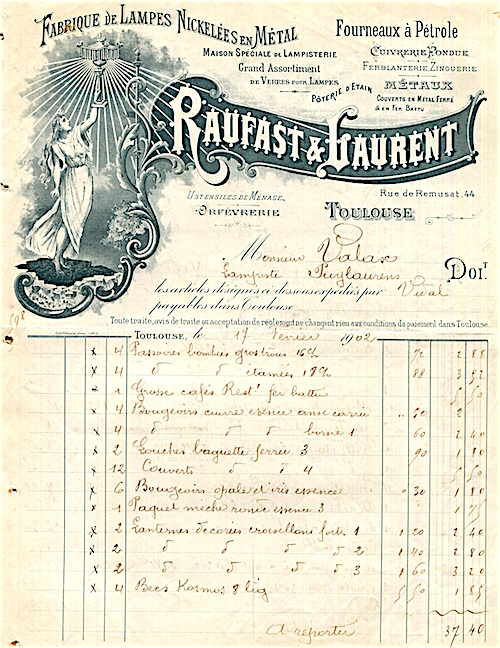 FABRIQUE DE LAMPES NICKELÉES EN MÉTAL
MAISON SPÉCIALE DE LAMPISTERIE
Grand Assortiment
DE VERRES POUR LAMPES
POTERIE D'ETAIN
Fourneaux à Pétrole
CUIVRERIE FONDUE
FERBLANTERIE, ZINGUERIE
MÉTAUX
COUVERTS EN MÉTAL FERRÉ
& EN FER BATTU
RAUFAST & LAURENT
USTENSILES DE MÉNAGE,
ORFÈVRERIE
Rue de Remusat, 44
TOULOUSE
Monsieur Valax
Lampiste Puylaurens
DOIT
les articles désignés ci-dessous expédiés par Vidal
payables dans Toulouse
Toute traite, avis de traite ou acceptation de règlement ne changent rien aux conditions de paiement dans Toulouse.
TOULOUSE, le 17 Février 1902
x 4 Passoires bombées gros trous 16% 72 2 88
x 4 d d étamées 18% 88 3 52
x 1 Grosse cafés Rest fer battu 5 50
x 4 Bougeoirs cuivre essence anse carrée 50 2
x 4 d d d borne 1 60 2 40
x 2 Louches baguette ferrée 3 90 1 80
x 12 Couverts d d 4 5 50
x 6 Bougeoirs opale et iris essence 30 1 80
x 1 Paquet mèche ronde essence 3 1 75
x 2 Lanternes décorées croisillons forts 1 1 20 2 40
x 2 d d d d 2 1 40 2 80
x 2 d d d d 3 1 60 3 20
x 4 Becs Kosmos 8 lig 5 50 1 85
A reporter 37 40